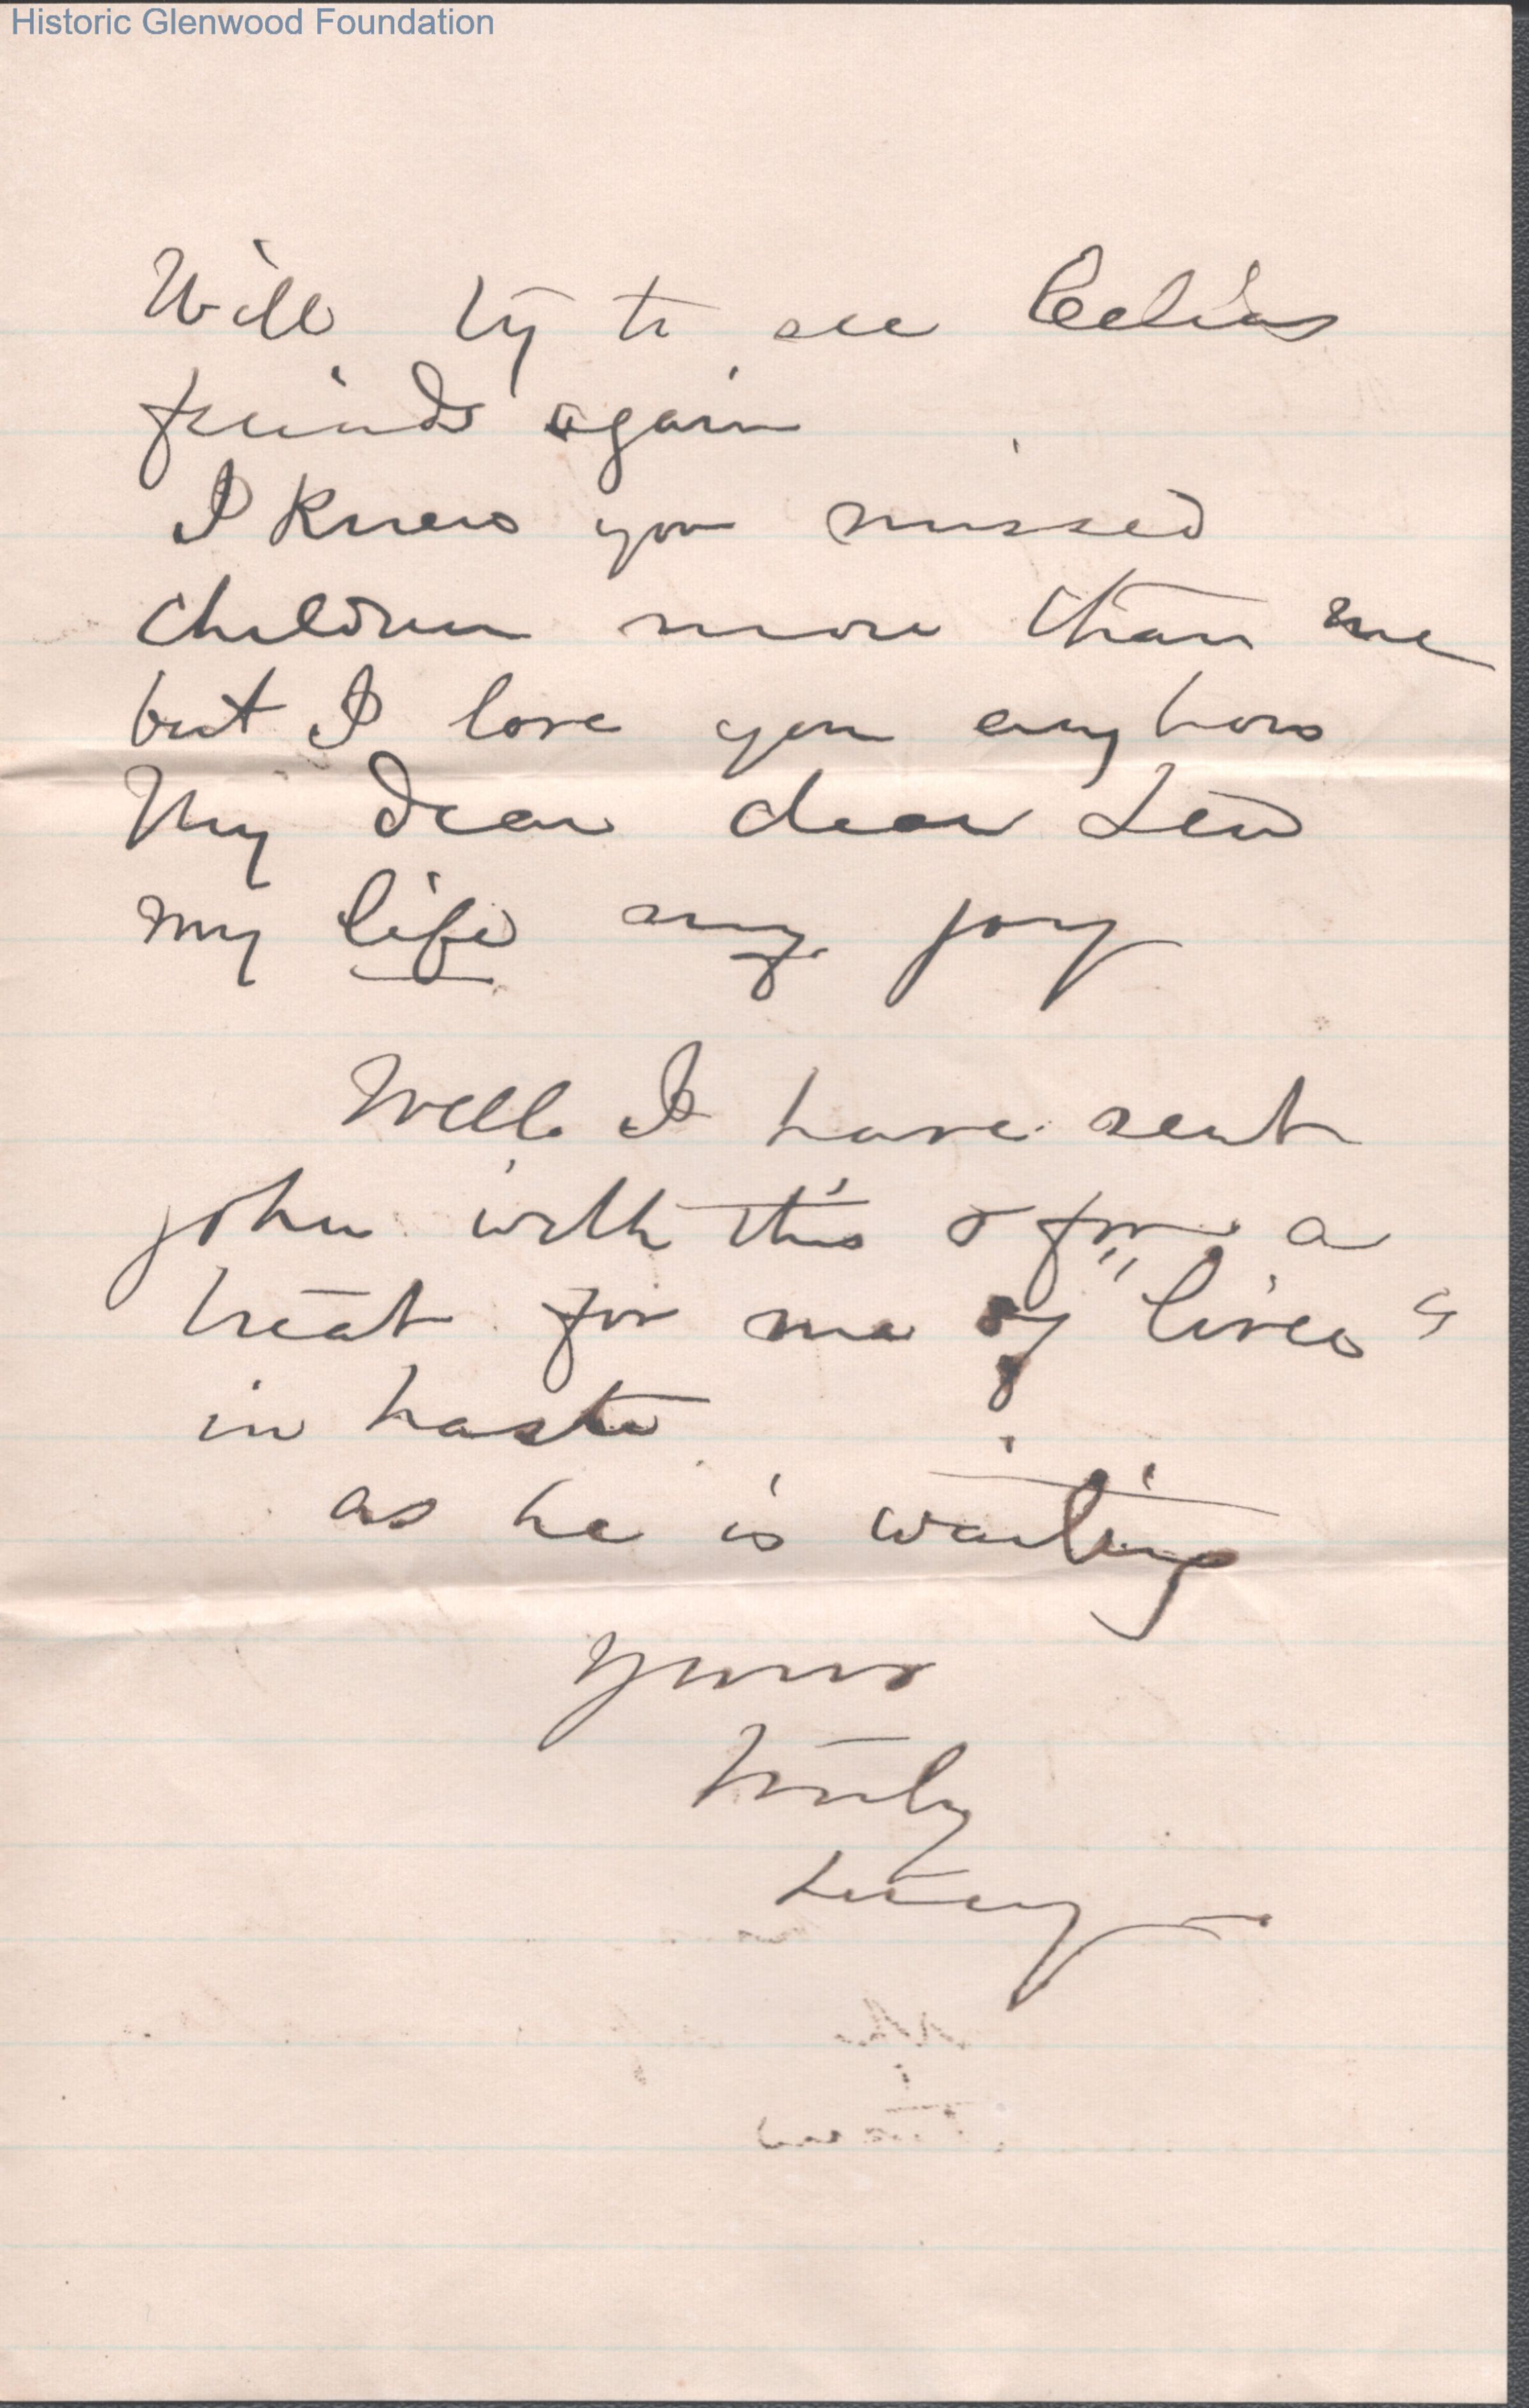 Historic Glenwood Foundation
Will try to see Celias
friends again
I knew you missed
children more than me
but I love you anyhow
My dear dear Lew
my life my joy
Well I have sent
john with this & for a
treat for me of "lives"
in haste
as he is waiting
Yours
truly